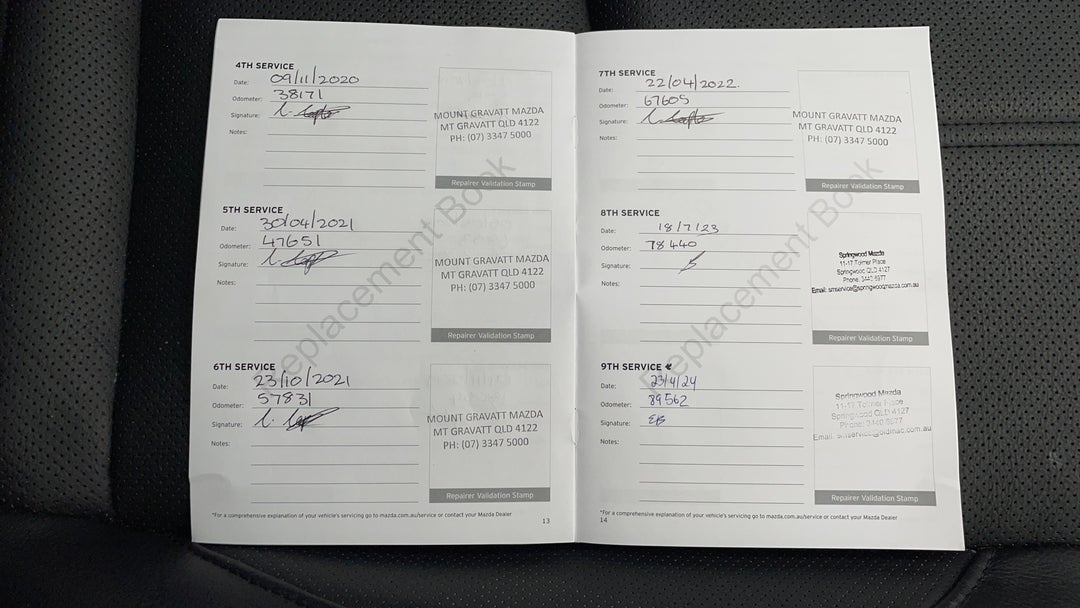 4TH SERVICE
Date: 09/11/2020
Odometer: 38171
Signature:
Notes:
MOUNT GRAVATT MAZDA
MT GRAVATT QLD 4122
PH: (07) 3347 5000
Repairer Validation Stamp
5TH SERVICE
Date: 30/04/2021
Odometer: 47651
Signature:
Notes:
MOUNT GRAVATT MAZDA
MT GRAVATT QLD 4122
PH: (07) 3347 5000
Repairer Validation Stamp
6TH SERVICE
Date: 23/10/2021
Odometer: 57831
Signature:
Notes:
MOUNT GRAVATT MAZDA
MT GRAVATT QLD 4122
PH: (07) 3347 5000
Repairer Validation Stamp
Replacement Book
*For a comprehensive explanation of your vehicle's servicing go to mazda.com.au/service or contact your Mazda Dealer
13
7TH SERVICE
Date: 22/04/2022.
Odometer: 67605
Signature:
Notes:
MOUNT GRAVATT MAZDA
MT GRAVATT QLD 4122
PH: (07) 3347 5000
Repairer Validation Stamp
8TH SERVICE
Date: 18/7/23
Odometer: 78440
Signature:
Notes:
Springwood Mazda
11-17 Tolmer Place
Springwood QLD 4127
Phone: 3440 8877
Email: smservice@springwoodmazda.com.au
Repairer Validation Stamp
9TH SERVICE
Date: 23/4/24
Odometer: 89562
Signature: EB
Notes:
Springwood Mazda
11-17 Tolmer Place
Springwood QLD 4127
Phone: 3440 8877
Email: smservice@oldmac.com.au
Repairer Validation Stamp
Replacement Book
*For a comprehensive explanation of your vehicle's servicing go to mazda.com.au/service or contact your Mazda Dealer
14